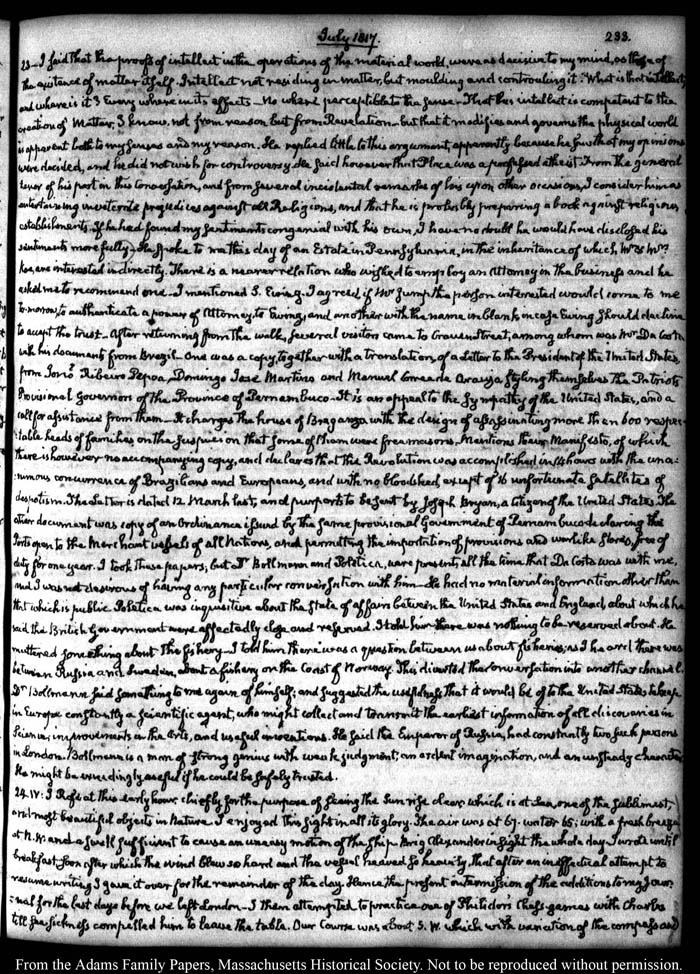 July 1817.
233.
23— I said that the proofs of intellect in the operations of the material world, were as decisive to my mind, as those of
the existence of matter itself. Intellect not residing in matter, but moulding and controuling it. What is that intellect,
and where is it? Every where in its effects— No where perceptible to the sense— That this intellect is competent to the
creation of Matter, I know, not from reason but from Revelation— but that it modifies and governs the physical world
is apparent both to my senses and my reason. He replied little to this argument, apparently because he found that my opinions
were decided, and he did not wish for controversy. He said however that Place was a professed atheist. From the general
tenor of his part in this Conversation, and from several incidental remarks of his upon other occasions, I consider him as
entertaining inveterate prejudices against all Religions, and that he is probably preparing a book against religious
establishments. If he had found my sentiments congenial with his own, I have no doubt he would have disclosed his
sentiments more fully— He spoke to me this day of an Estate in Pennsylvania, in the inheritance of which, Mr. & Mrs.
are interested indirectly. There is a nearer relation who wished to employ an Attorney in the business and he
asked me to recommend one— I mentioned S. Ewing. I agreed, if Mr the person interested would come to me
to-morrow, to authenticate a power of Attorney, to Ewing, and another with the name in blank in case Ewing should decline
to accept the trust— After returning from the walk, several visitors came to Craven Street, among whom was Mr Da Costa
with his document from Brazil— One was a copy, together with a translation, of a Letter to the President of the United States
from Ribeiro Pessoa, Domingo José Martins and Manuel Araujo styling themselves the Patriots
Provisional Governors of the Province of Pernambuco— It is an appeal to the sympathy of the United States, and a
call for assistance from them— It charges the house of Braganza with the design of assassinating more then 600 respec-
-table heads of families on the suspicion that some of them were freemasons. Mentions their Manifesto, of which
there is however no accompanying copy, and declares that the Revolution was accomplished in hours with the una-
-nimous concurrence of Brazilians and Europeans, and with no bloodshed except of unfortunate satellites of
despotism. The Letter is dated 12. March last, and purports to be sent by Joseph Bryan, a Citizen of the United States. The
other document was copy of an Ordinance issued by the same provisional Government of Pernambuco declaring the
Ports open to the Merchant vessels of all Nations, and permitting the importation of provisions and warlike stores, free of
duty for one year. I took these papers; but Dr. Bollmann and Poletica, were present, all the time that Da Costa was with me,
and I was not desirous of having any particular conversation with him— He had no material information other than
that which is public. Poletica was inquisitive about the state of affairs between the United States and England, about which he
said the British Government were affectedly close and reserved. I told him there was nothing to be reserved about. He
muttered something about the Fishery— I told him there was a question between us about fisheries, as I heard there was
between Russia and Sweden, about a fishery on the Coast of Norway. This diverted the conversation into another channel.
Dr. Bollmann said something to me again of himself; and suggested the usefulness that it would be of to the United States to keep
in Europe constantly a scientific agent, who might collect and transmit the earliest information of all discoveries in
Science, improvements in the Arts, and useful inventions. He said the Emperor of Russia, had constantly two such persons
in London. Bollmann is a man of strong genius with weak judgment; an ardent imagination, and an unsteady character.
He might be exceedingly useful if he could be safely trusted.
24. IV: I Rose at this early hour, chiefly for the purpose of seeing the Sun rise clear, which is at Sea, one of the sublimest,
and most beautiful objects in Nature— I enjoyed this sight in all its glory. The air was at 67. water 65; with a fresh breeze
at N.W. and a swell sufficient to cause an uneasy motion of the ship. Brig Alexander in sight the whole day. I wrote until
breakfast, soon after which the wind blew so hard and the vessel heaved so heavily, that after an ineffectual attempt to
resume writing I gave it over for the remainder of the day. Hence the present intermission of the additions to my Jour-
-nal for the last days before we left London— I then attempted to practice one of Philidor's Chess games with Charles
till sea sickness compelled him to leave the table. Our Course was about S.W. which with variation of the compass and
From the Adams Family Papers, Massachusetts Historical Society. Not to be reproduced without permission.